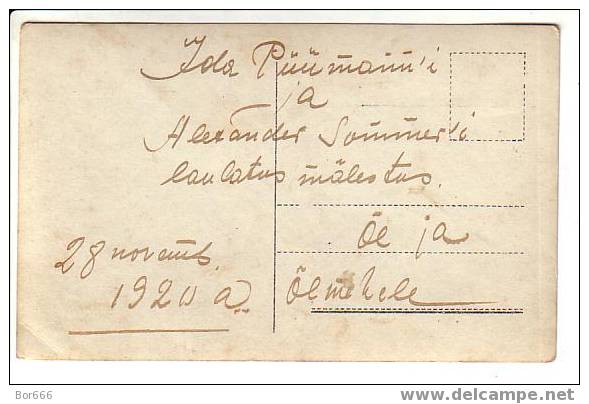 Ida Püümann'i
ja
Alexander Sommer'i
laulatus mälestus.
Õe ja
Õemehele
28 novemb.
1920 a.
Bor666
www.delcampe.net